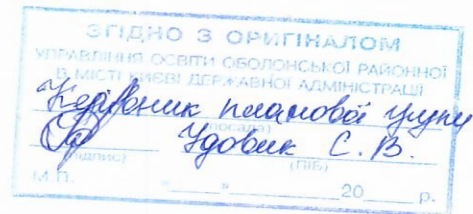 ЗГІДНО З ОРИГІНАЛОМ
УПРАВЛІННЯ ОСВІТИ ОБОЛОНСЬКОЇ РАЙОННОЇ
В МІСТІ КИЄВІ ДЕРЖАВНОЇ АДМІНІСТРАЦІЇ
Керівник планової групи
(посада)
Удовик С. В.
(підпис) (ПІБ)
М.П. "___" ________ 20___ р.